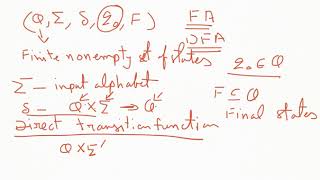 (Q, Σ, δ, q₀, F)
FA
DFA
Finite nonempty set of states
q₀ ∈ Q
Σ – input alphabet
F ⊆ Q
δ – Q × Σ → Q
Final states
Direct transition function
Q × Σ